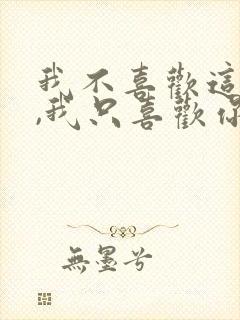 我不喜歡這
,我只喜歡你
無墨兮